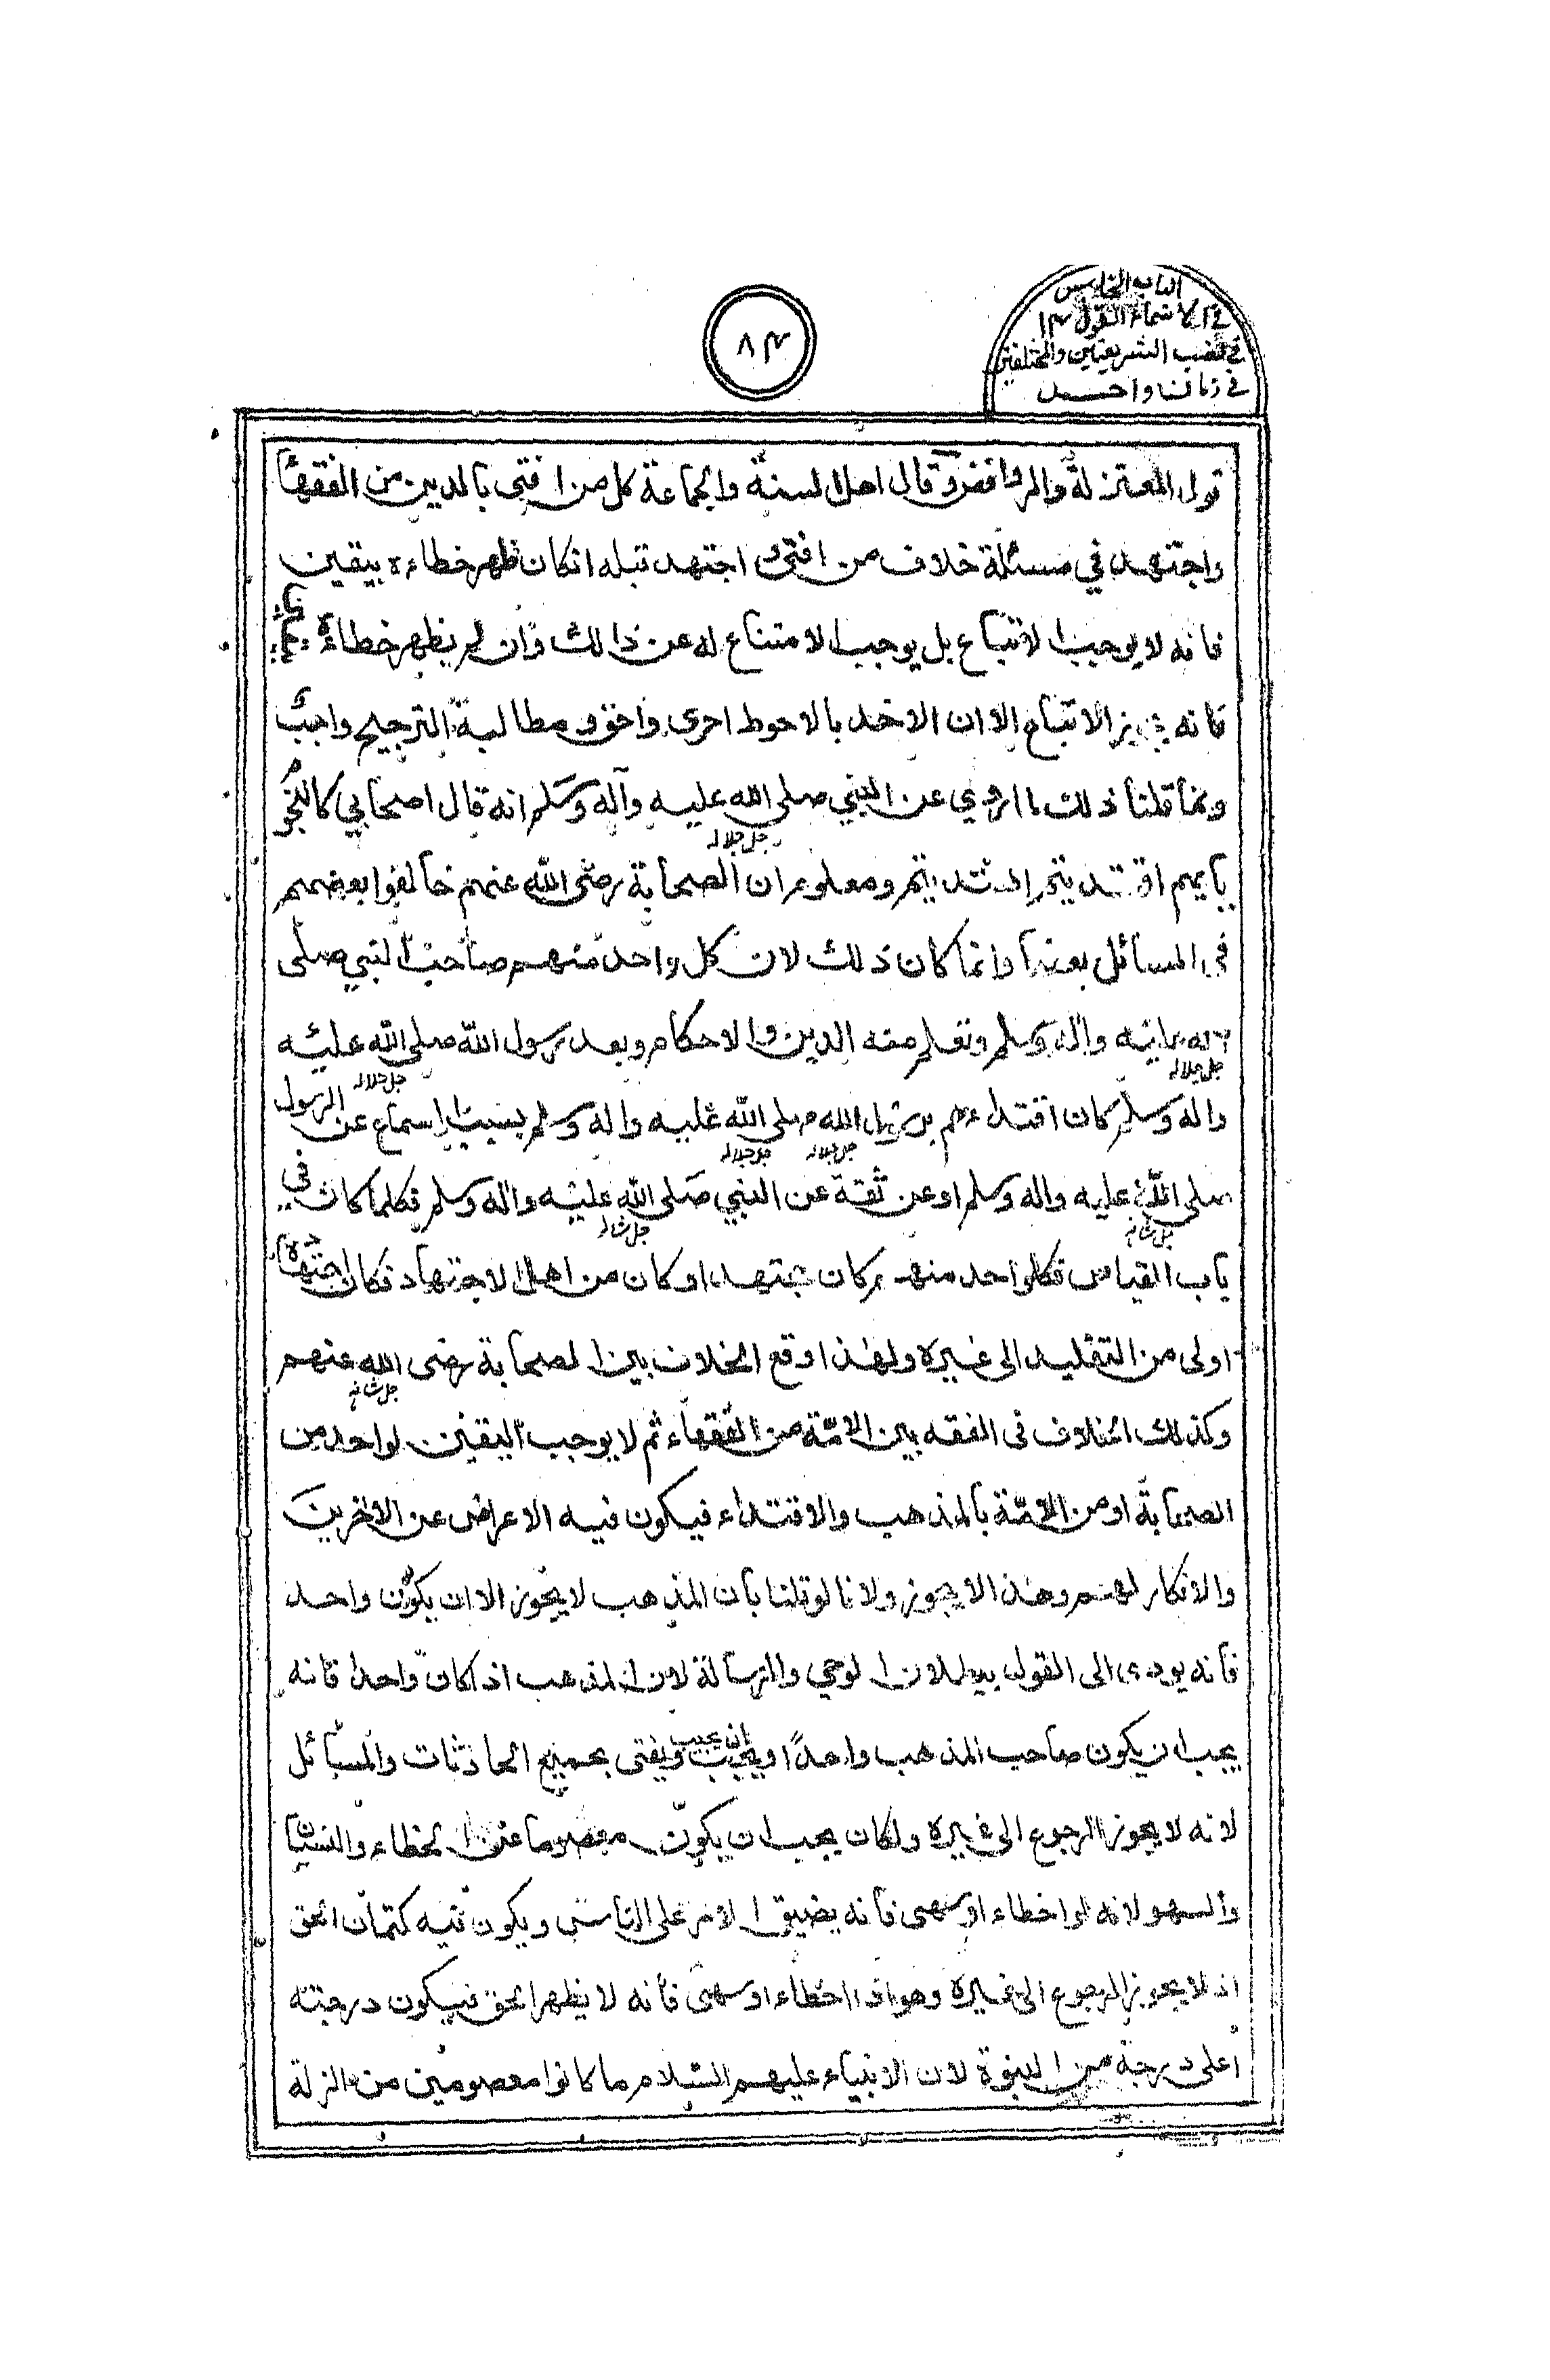 الباب الخامس
في الاشياء القول ١٣
في نصب الشريعتين والمختلفين
في زمان واحد
٨٣
قول المعتزلة والروافض وقال اهل السنة والجماعة كل من افتى بالدين من الفقها
واجتهد في مسئلة خلاف من افتى و اجتهد قبله انكان ظهر خطاءه بيقين
فانه لا يوجب الاتباع بل يوجب الامتناع له عن ذالك وان لم يظهر خطاءه
فانه يجوز الاتباع الا ان الاخذ بالاحوط احرى واخق و مطالبة الترجيح واجب
وانما قلنا ذلك لما روي عن النبي صلى الله عليه وآله وسلم انه قال اصحابي كالنجو
جل جلاله
بايهم اقتديتم اهتديتم ومعلوم ان الصحابة رضى الله عنهم خالفوا بعضهم
في المسائل بعضا وانما كان ذلك لان كل واحد منهم صاحب النبي صلى
الله عليه واله وسلم وتعلم منه الدين والاحكام وبعد رسول الله صلى الله عليه
جل جلاله جل جلاله
واله وسلم كان اقتداءهم برسول الله صلى الله عليه واله وسلم بسبب اسماع عن الرسول
جل جلاله جل جلاله
صلى الله عليه واله وسلم او عن ثقة عن النبي صلى الله عليه واله وسلم فكلما كان في
جل شانه جل شانه
باب القياس فكل واحد منهم كان مجتهدا وكان من اهل الاجتهاد فكان اجتهاده
اولى من التقليد الى غيره ولهذا وقع الخلاف بين الصحابة رضى الله عنهم
جل شانه
وكذلك اختلاف فى الفقه بين الامّة من الفقهاء ثم لا يوجب اليقين لواحد من
الصحابة او من الائمّة بالمذهب والاقتداء فيكون فيه الاعراض عن الاخرين
والانكار لهم وهذا لا يجوز ولانا لو قلنا بان المذهب لا يجوز الا ان يكون واحد
فانه يودى الى القول ببطلان الوحي والرسالة لان المذهب اذا كان واحدا فانه
يجب ان يكون صاحب المذهب واحدًا ويجب ان يجيب ويفتى بجميع الحادثات والمسائل
لانه لا يجوز الرجوع الى غيره ولكان يجب ان يكون معصوما عن الخطاء والنسيان
والسهو لانه لو اخطاء او سهى فانه يضيق الامر على الناس ويكون فيه كتمان الحق
اذ لا يجوز الرجوع الى غيره وهو اذا اخطاء او سهى فانه لا يظهر الحق فيكون درجته
اعلى درجة من النبوة لان الانبياء عليهم السلام ما كانوا معصومين من الزلة